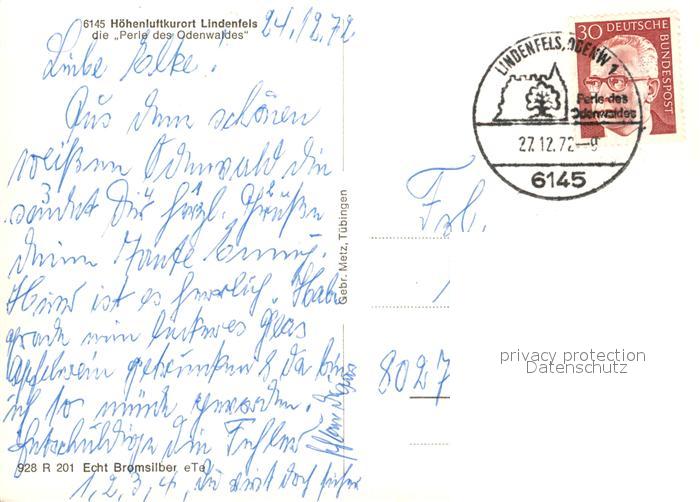 6145 Höhenluftkurort Lindenfels
die „Perle des Odenwaldes"
24.12.72
Liebe Elke!
Aus dem schönen
weißen Odenwald die
sendet Dir herzl. Grüße
deine Tante
Hier ist es herrlich. Habe
grade ein leckeres Glas
Apfelwein getrunken & da bin
ich so müde geworden.
Entschuldige die Fehler
1, 2, 3, 4, du wirst doch sicher
928 R 201 Echt Bromsilber eTe
Gebr. Metz, Tübingen
30 DEUTSCHE
BUNDESPOST
LINDENFELS, ODENW 1
Perle des
Odenwaldes
27.12.72-9
6145
Frl.
8027
privacy protection
Datenschutz